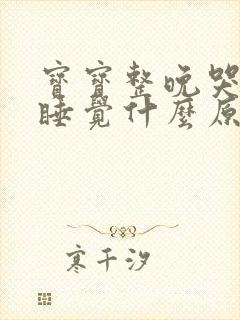 寶寶整晚哭
睡覺什麼原
寒千汐